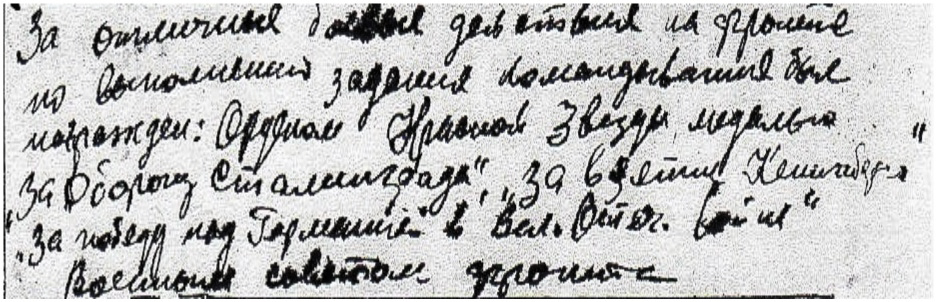 За отличные боевые действия на фронте
по выполнении задания командывания был
награжден: Орденом Красной Звезды, медалью
„За Оборону Сталинграда", „За взятие Кенигсберга"
„За победу над Германией в Вел. Отеч. войне"
Военным советом фронта